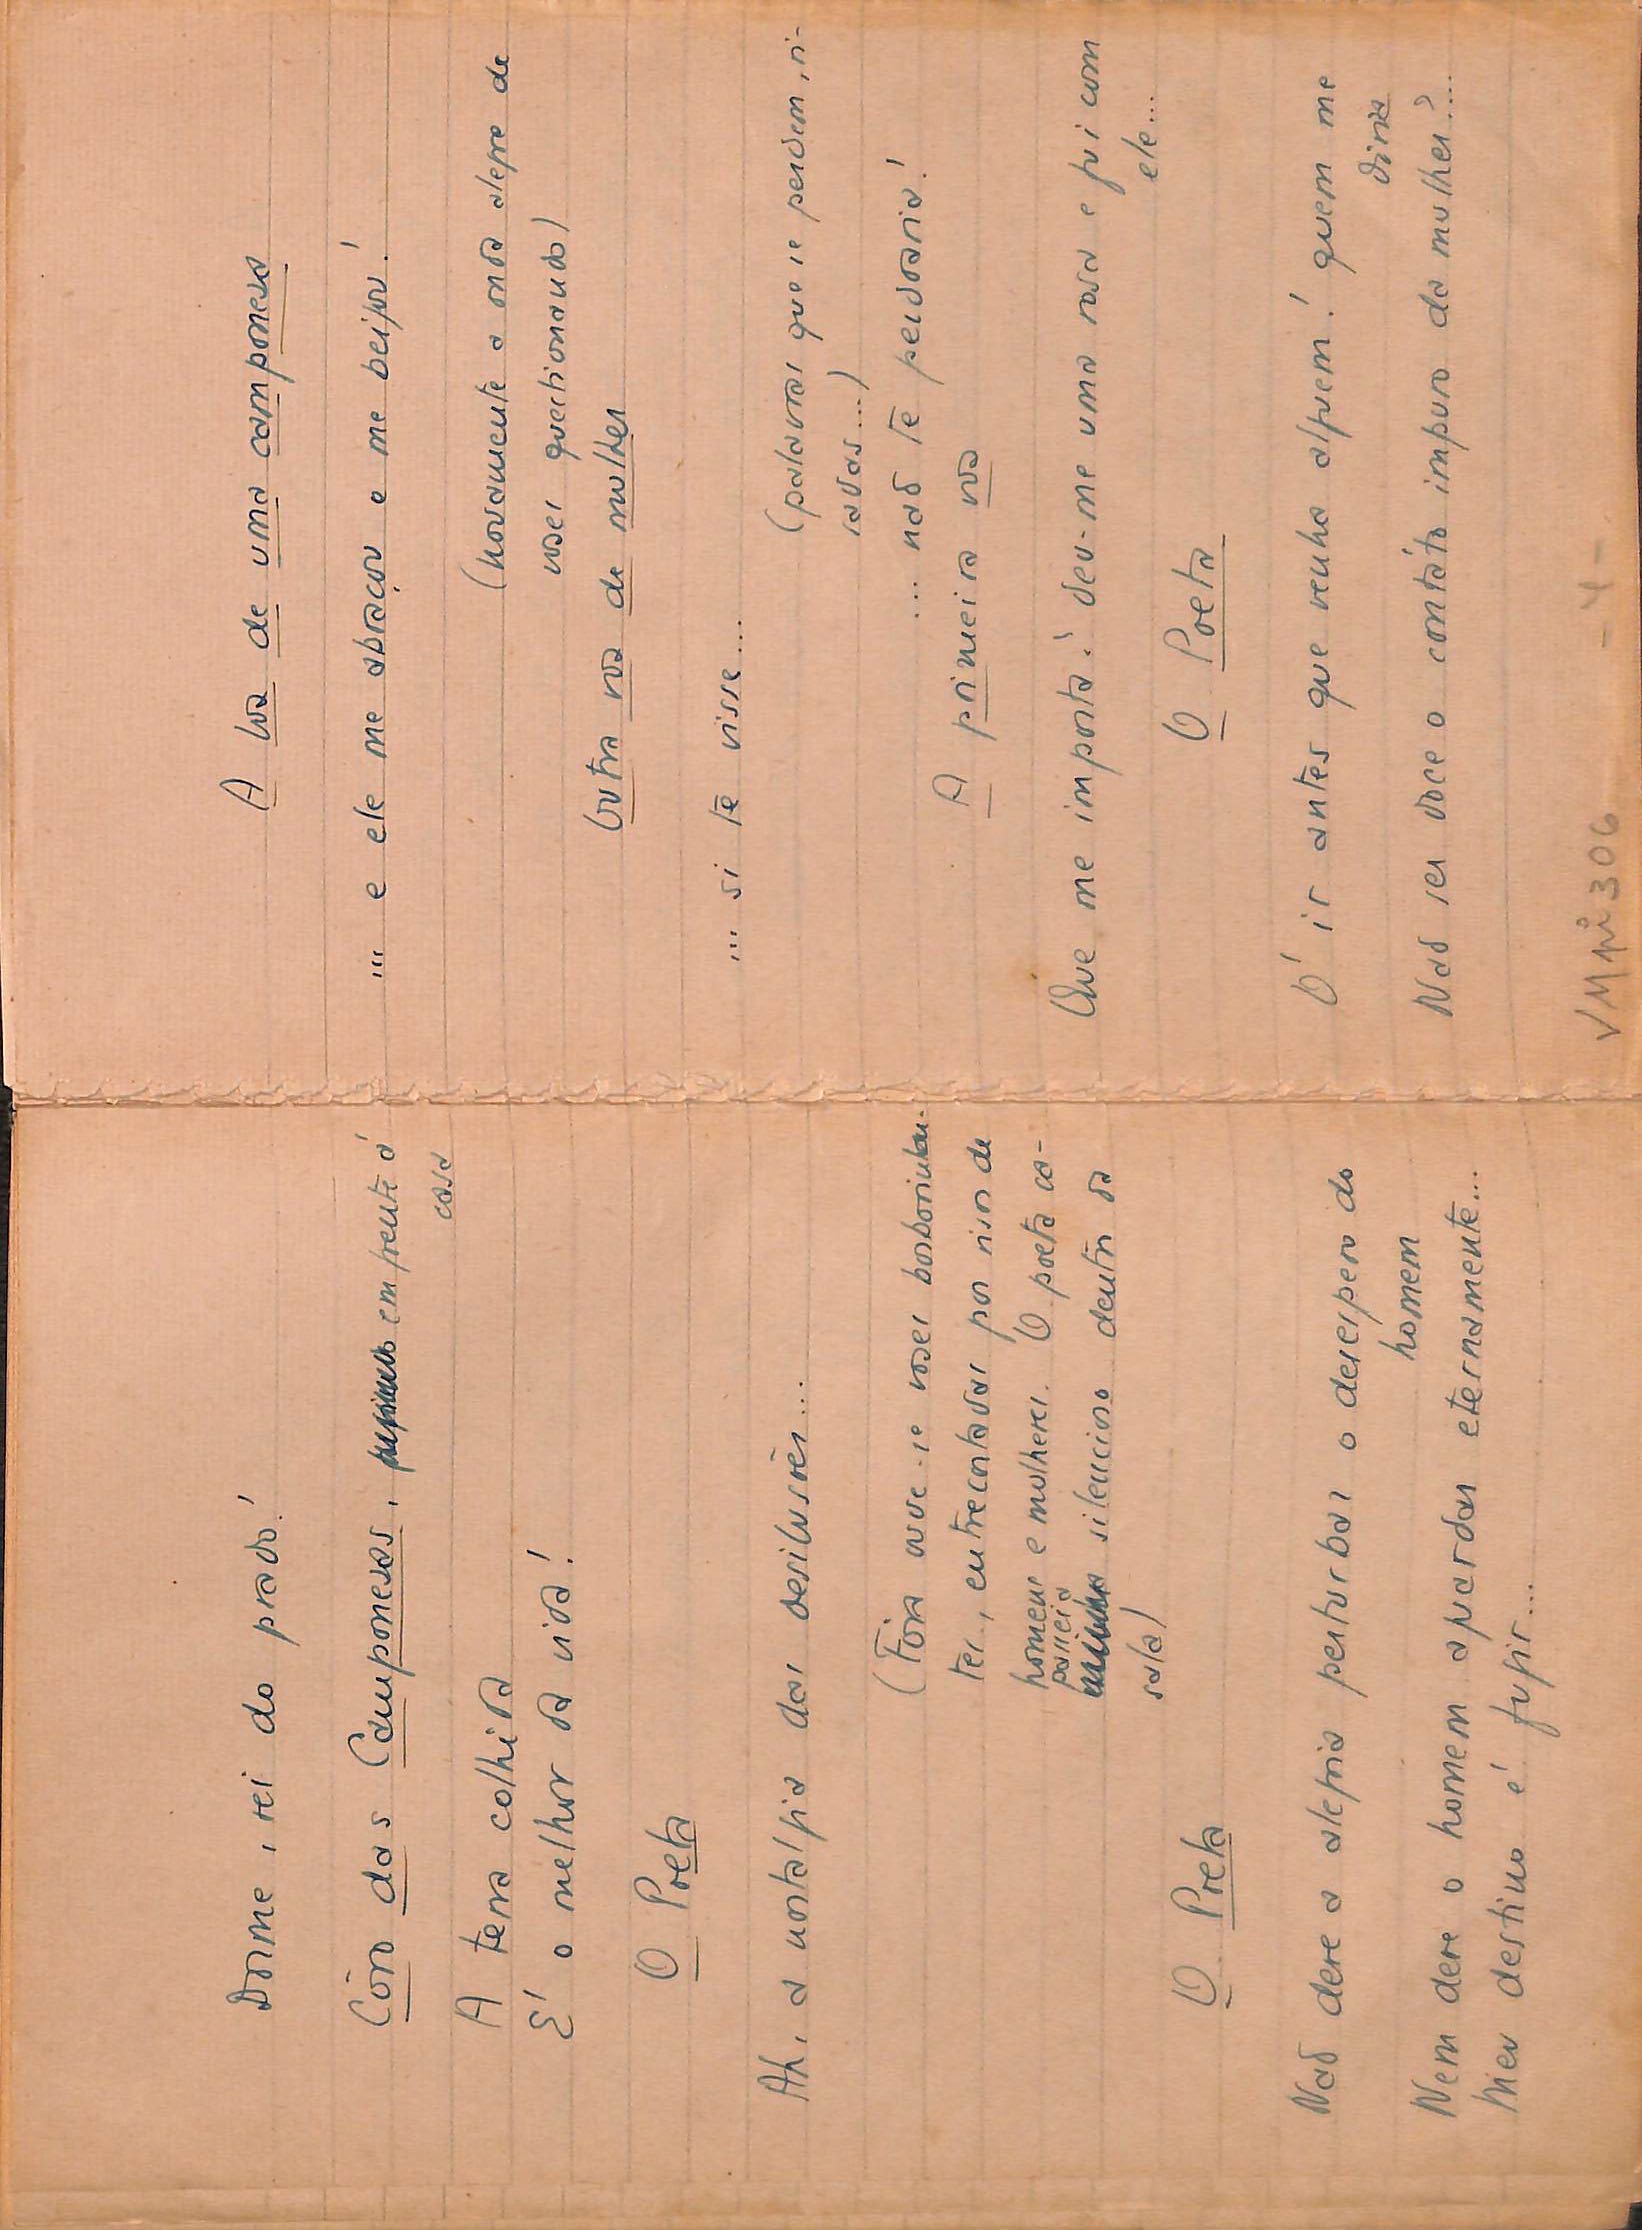 Dorme, rei do prado!
Côro das Camponesas, em frente á
casa
A terra colhida
E' o melhor da vida!
O Poeta
Ah, a nostalgia das desilusões...
(Fóra ouve-se vozes borborinhan-
tes, entrecortadas por risos de
homens e mulheres. O poeta ca-
passeia
silencioso dentro da
sala)
O Poeta
Naõ deve a alegria perturbar o desespero do
homem
Nem deve o homem aguardar eternamente...
Meu destino é fugir...
A voz de uma camponesa
... e ele me abraçou e me beijou!
(novamente a onda alegre de
vozes questionando)
Outra voz de mulher
... si te visse....
(palavras que se perdem, ri-
sadas...)
... naõ te perdoaria!
A primeira voz
Que me importa! deu-me uma rosa e fui com
ele...
O Poeta
O' ir antes que venha alguem! quem me
diria
Naõ ser doce o contáto impuro da mulher?...
VMpi 306
-4-